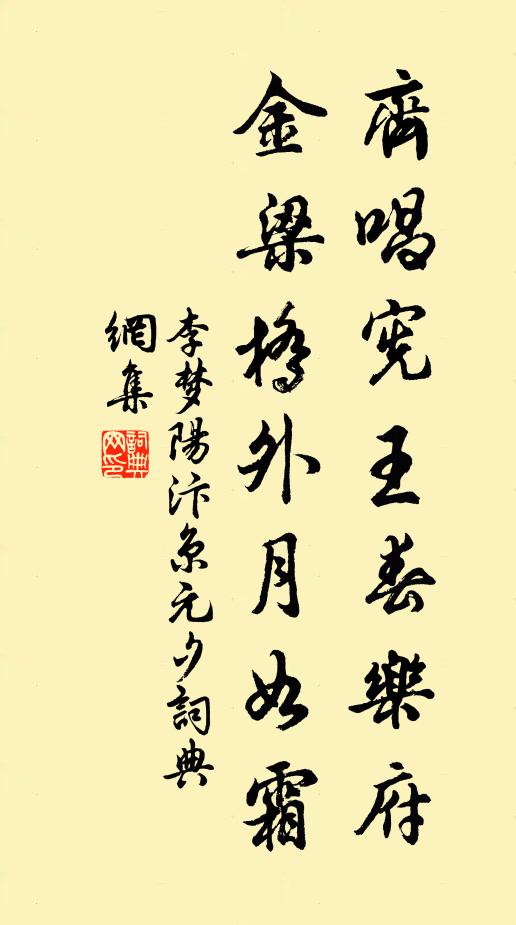 齊唱憲王春樂府
金梁橋外月如霜
李梦陽汴京元夕詞典
網集
詞典網印